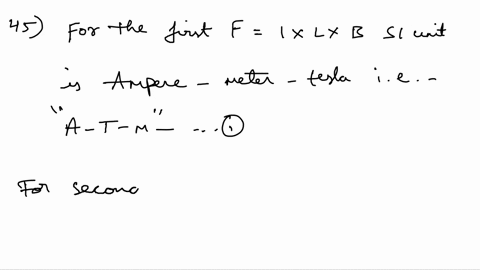 45) For the first F = I × L × B SI unit
is Ampere - meter - tesla i.e. -
"A - T - m" - ... ①
For second